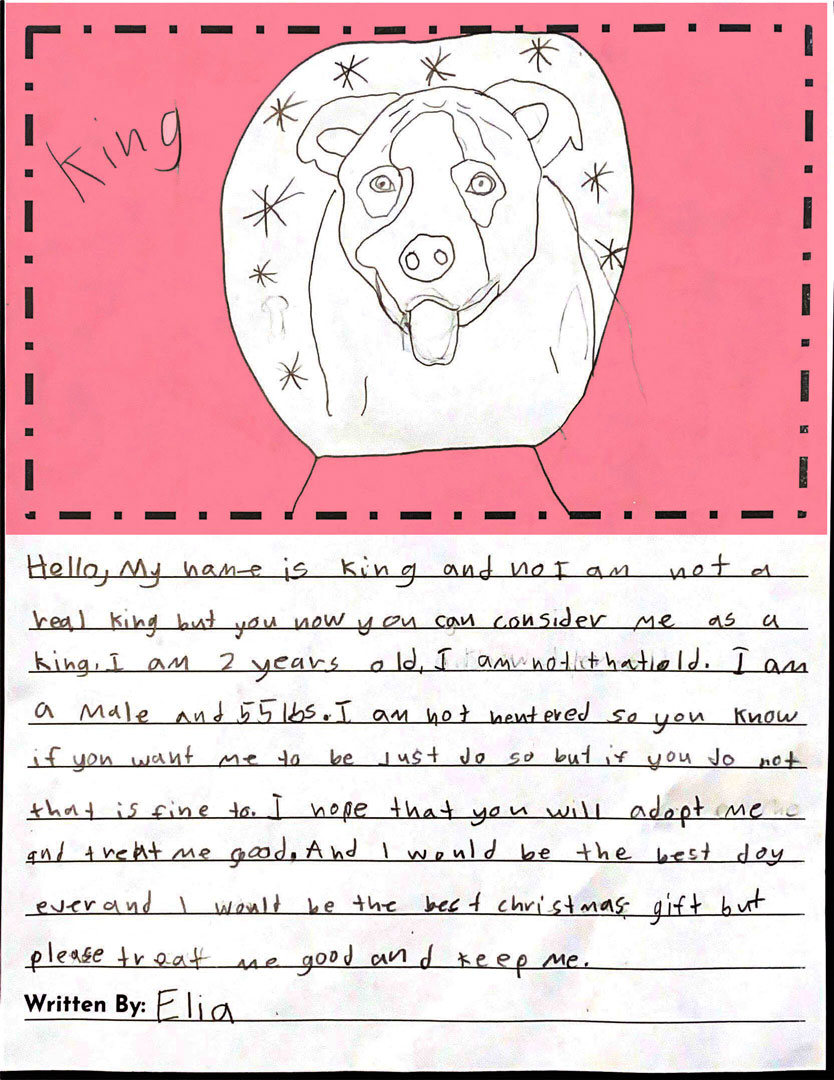 King
Hello, My name is king and no I am not a
real king but you now you can consider me as a
king. I am 2 years old, I am not that old. I am
a male and 55 lbs. I am not neutered so you know
if you want me to be Just do so but if you do not
that is fine to. I hope that you will adopt me
and treat me good. And I would be the best doy
ever and I would be the best christmas gift but
please treat me good and keep me.
Written By: Elia